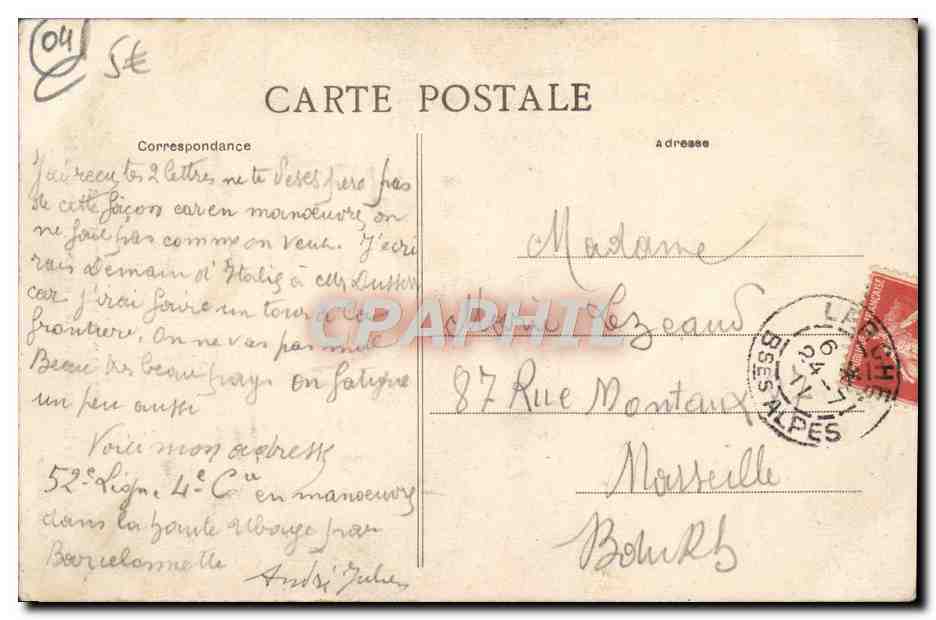 04
5€
CARTE POSTALE
Correspondance
Adresse
J'ai reçu tes 2 lettres ne te desespere pas
de cette façon car en manœuvre on
ne fait pas comme on veut. J'ecri
rais demain d'Italie à
car j'irai faire un tour à la
frontiere. On ne vas pas mal
Beau des beau pays on fatigue
un peu aussi
Voici mon adresse
52e Ligne 4e Cie en manœuvre
dans la haute Ubaye par
Barcelonnette
André Julien
Madame
87 Rue Montaux
Marseille
B du Rh
CPAPHIL
LARCHE
6
24-7
Bses ALPES
FRANÇAISE